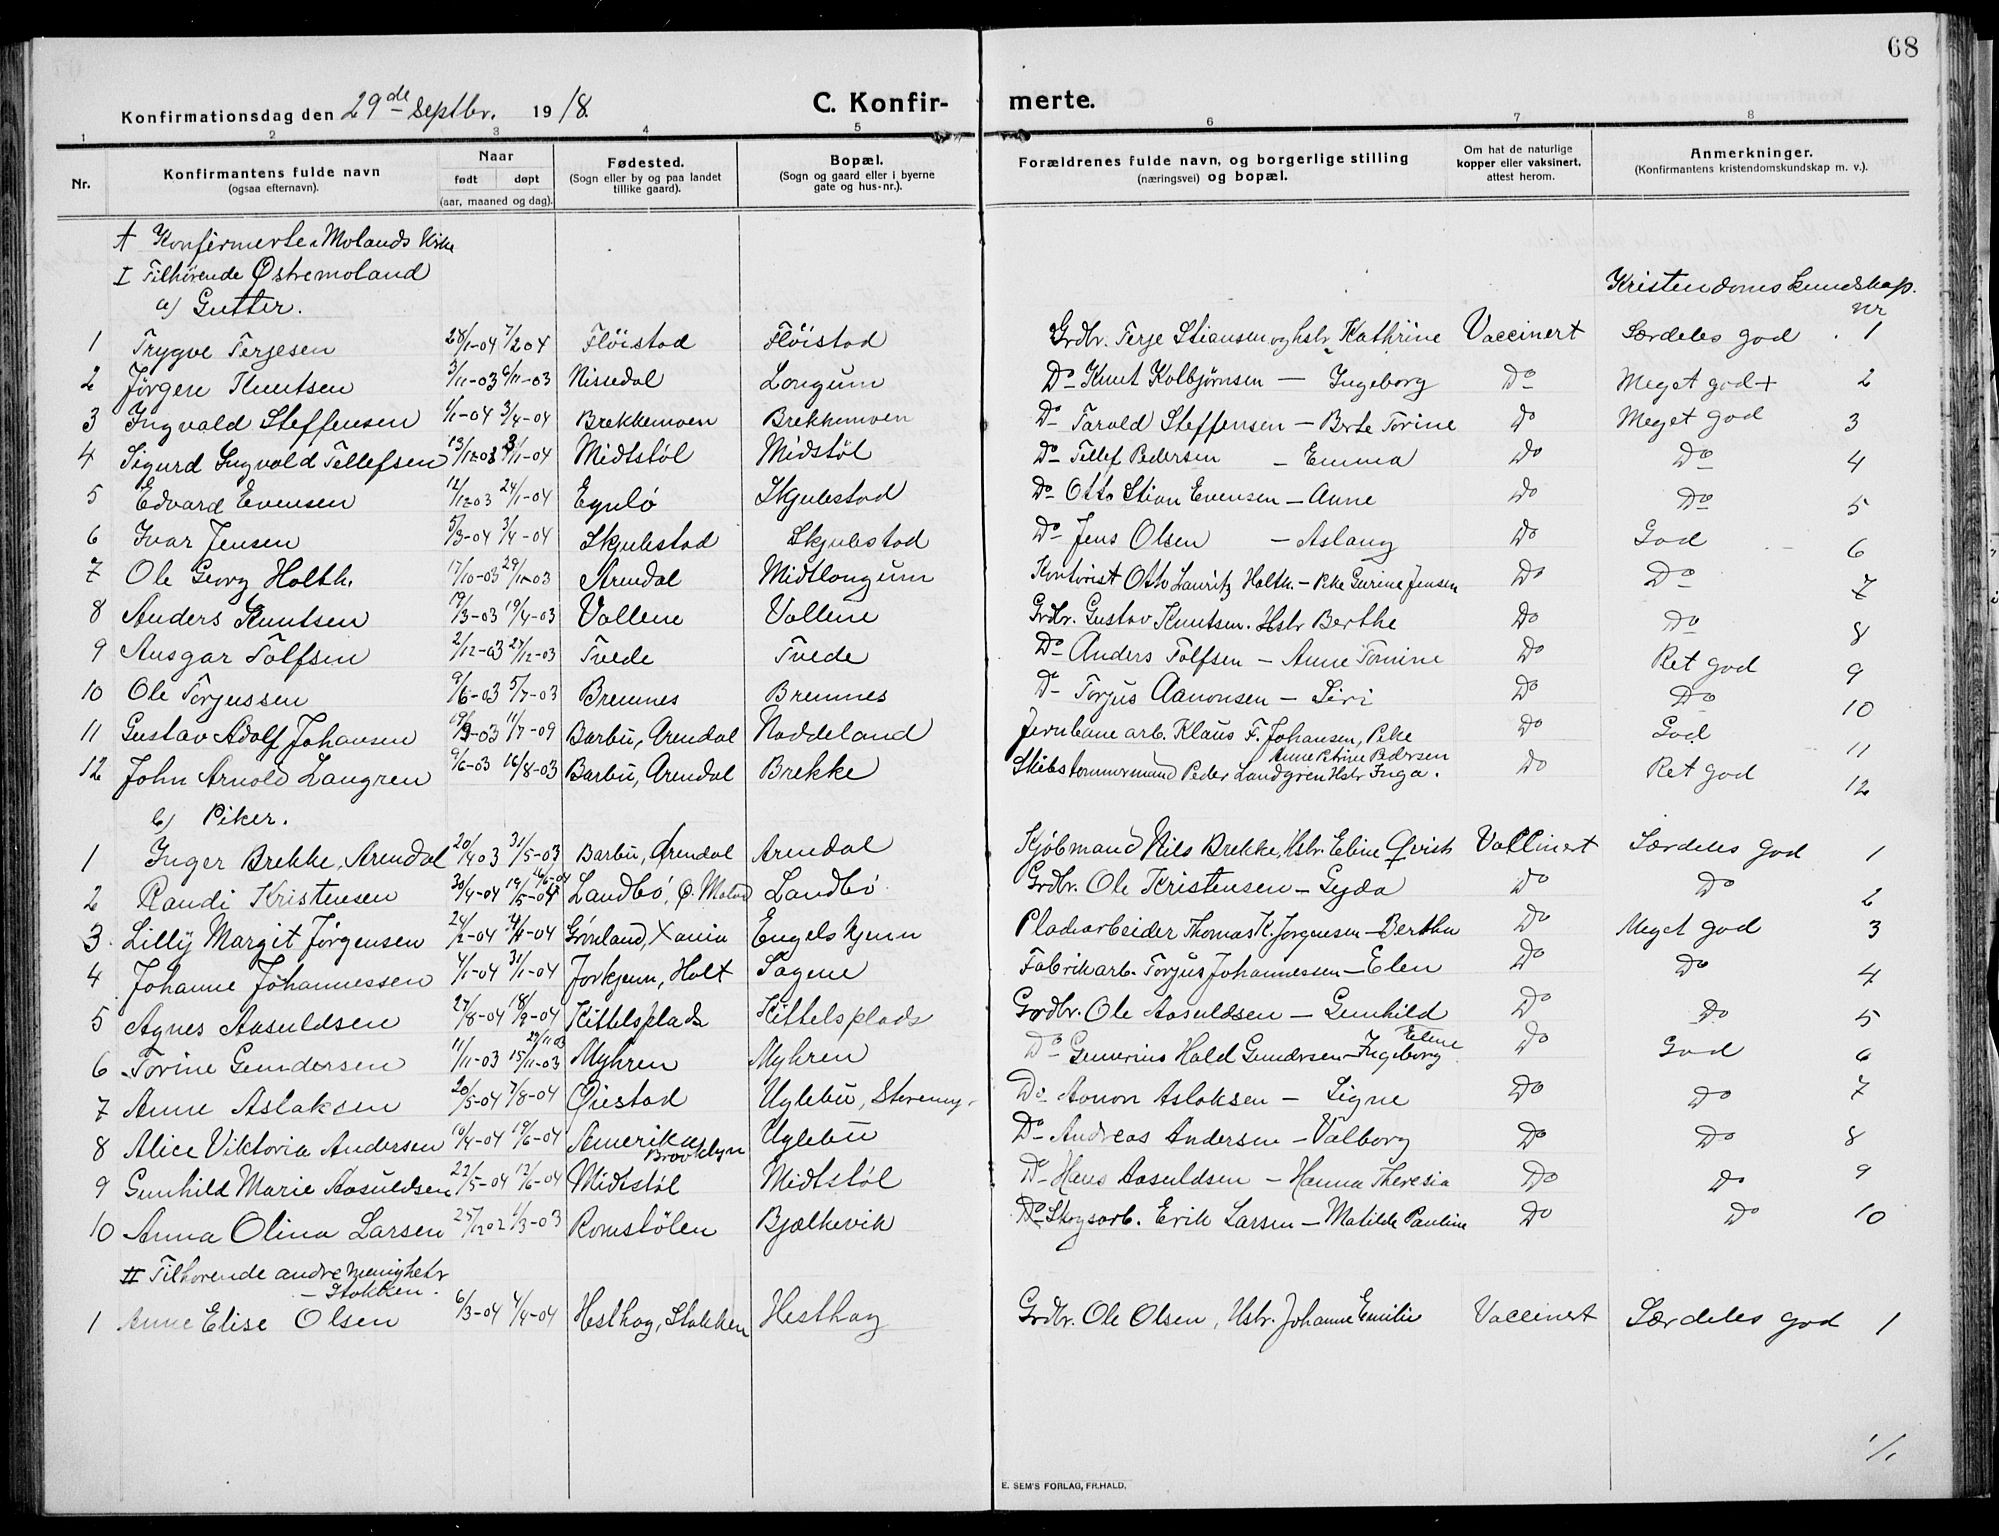 68
Konfirmationsdag den 29de Septbr. 1918. C. Konfirmerte.
1 2 3 4 5 6 7 8
Nr. Konfirmantens fulde navn (ogsaa efternavn). Naar født døpt (aar, maaned og dag). Fødested. (Sogn eller by og paa landet tillike gaard). Bopæl. (Sogn og gaard eller i byerne gate og hus-nr.). Forældrenes fulde navn, og borgerlige stilling (næringsvei) og bopæl. Om hat de naturlige kopper eller vaksinert, attest herom. Anmerkninger. (Konfirmantens kristendomskundskap m. v.).
A Konfirmerte i Molands Kirke
I Tilhørende Østremoland
a) Gutter. Kristendomskundskap. nr
1 Trygve Terjesen 28/1-04 7/2 04 Fløistad Fløistad Grdbr. Terje Stiansen og hstr Kathrine Vaccinert Særdeles god . 1
2 Jørgen Knutsen 3/11-03 6/11-03 Nissedal Longum Do Knut Kolbjørnsen — Ingeborg Do Meget god + 2
3 Ingvald Steffensen 1/1-04 3/4-04 Brekkemoen Brekkemoen Do Tarald Steffensen — Berte Torine Do Meget god 3
4 Sigurd Ingvald Tellefsen 13/12 03 3/1-04 Midtstøl Midstøl Do Tellef Pedersen — Emma Do Do 4
5 Edvard Evensen 12/12 03 24/1-04 Egnlø Skjulestad Do Otto Stian Evensen — Anne Do Do 5
6 Ivar Jensen 5/3-04 3/4-04 Skjulestad Skjulestad Do Jens Olsen — Aslaug Do God 6
7 Ole Georg Holth. 17/10-03 29/11-03 Arendal Midtlongum Kontorist Otto Lauritz Holth. — Pke Gurine Jensen Do Do 7
8 Anders Knutsen 19/3-03 19/4-03 Vallene Vallene Grdbr. Gustav Knutsen. Hstr Berthe Do Do 8
9 Ansgar Tolfsen 2/12-03 27/12-03 Tvede Tvede Do Anders Tolfsen — Anne Tomine Do Ret god 9
10 Ole Torjussen 9/6-03 5/7-03 Bremnes Bremnes Do Torjus Aanonsen — Siri Do Do 10
11 Gustav Adolf Johansen 19/3-03 11/7-09 Barbu, Arendal Noddeland Jernbanearb. Klaus F. Johansen, Pike Anne Petrine Pedersen Do God 11
12 John Arnold Langren 9/6-03 16/8-03 Barbu, Arendal Brekke Skibstømmermand Peder Landgren Hstr Inga. Do Ret god 12
b) Piker.
1 Inger Brekke, Arendal 20/4 03 31/5-03 Barbu, Arendal Arendal Kjøbmand Nils Brekke, Hstr. Eline Qvist Vaccinert Særdeles god 1
2 Randi Kristensen 30/4-04 Landbø, Ø. Moland Landbø Grdbr. Ole Kristensen — Gyda Do Do 2
3. Lilly Margit Jørgensen 24/2-04 Grønland, Xania Engelskjenn Pladsarbeider Thomas K. Jørgensen — Bertha Do Meget god 3
4 Johanne Johannessen 4/1-04 31/1-04 Jorkjenn, Holt Sagene Fabrikarb. Torjus Johannessen — Elen Do Do 4
5 Agnes Aasuldsen 27/8-04 18/9-04 Kittelsplads Kittelsplads Grdbr. Ole Aasuldsen — Gunhild Do Do 5
6 Torine Gundersen 11/11-03 15/11-03 29/11 03 Myhren Myhren Do Gunerius Hald Gundrsen — Ingeborg Eline Do God 6
7 Anne Aslaksen 20/5-04 7/8-04 Øiestad Uglebu, Do Aanon Aslaksen — Signe Do Do 7
8 Alice Viktoria Andersen 10/4-04 19/6-04 Amerika Brooklyn Uglebu Do Andreas Andersen — Valborg Do Do 8
9 Gunhild Marie Aasuldsen 22/5-04 12/6-04 Midtstøl Midtstøl Do Hans Aasuldsen — Hanna Theresia Do Do 9
10 Anna Olina Larsen 25/12 02 1/3-03 Romstølen Bjælkevik Do Skogsarb. Erik Larsen — Matilde Pauline Do Do 10
II Tilhørende andre menigheter
— Stokken.
1 Anne Elise Olsen 6/3-04 4/4-04 Hesthag, Stokken Hesthag Grdbr. Ole Olsen, Hstr. Johanne Emilie Vaccinert Særdeles god 1
1/1
E. SEM'S FORLAG, FR.HALD.